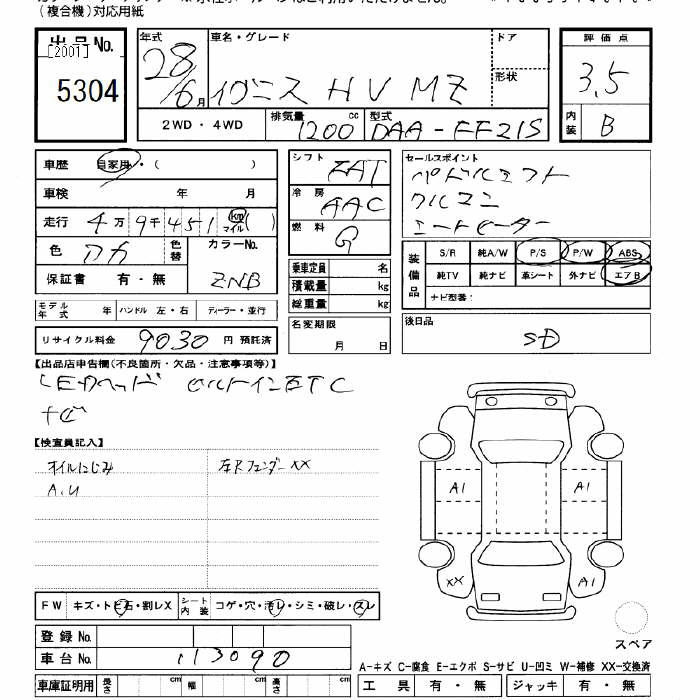 (複合機)対応用紙
出品No.
[2001]
5304
年式
28/6月
車名・グレード
イグニス HV MZ
ドア
形状
2WD・4WD
排気量 1200 cc
型式 DAA-FF21S
評価点
3.5
内装 B
車歴 自家用・( )
車検 年 月
走行 4万9千451 km マイル( )
色 アカ 色替
カラーNo. ZNB
保証書 有・無
モデル年式 年 ハンドル 左・右 ディーラー・並行
リサイクル料金 9030 円 預託済
シフト FAT
冷房 AAC
燃料 G
乗車定員 名
積載量 kg
総重量 kg
名変期限
月 日
セールスポイント
パドルシフト
クルコン
シートヒーター
装備品
S/R 純A/W P/S P/W ABS
純TV 純ナビ 革シート 外ナビ エアB
ナビ型番:
後日品
SD
【出品店申告欄(不良箇所・欠品・注意事項等)】
LEDヘッド ビルトインETC
ナビ
【検査員記入】
オイルにじみ 左Rフェンダーxx
A.U
A1 A1
XX A1
スペア
FW キズ・トビ石・割レX
シート内装 コゲ・穴・汚レ・シミ・破レ・スレ
登録No.
車台No. 113090
A-キズ C-腐食 E-エクボ S-サビ U-凹ミ W-補修 XX-交換済
車庫証明用 長さ cm 幅 cm 高さ cm
工具 有・無 ジャッキ 有・無